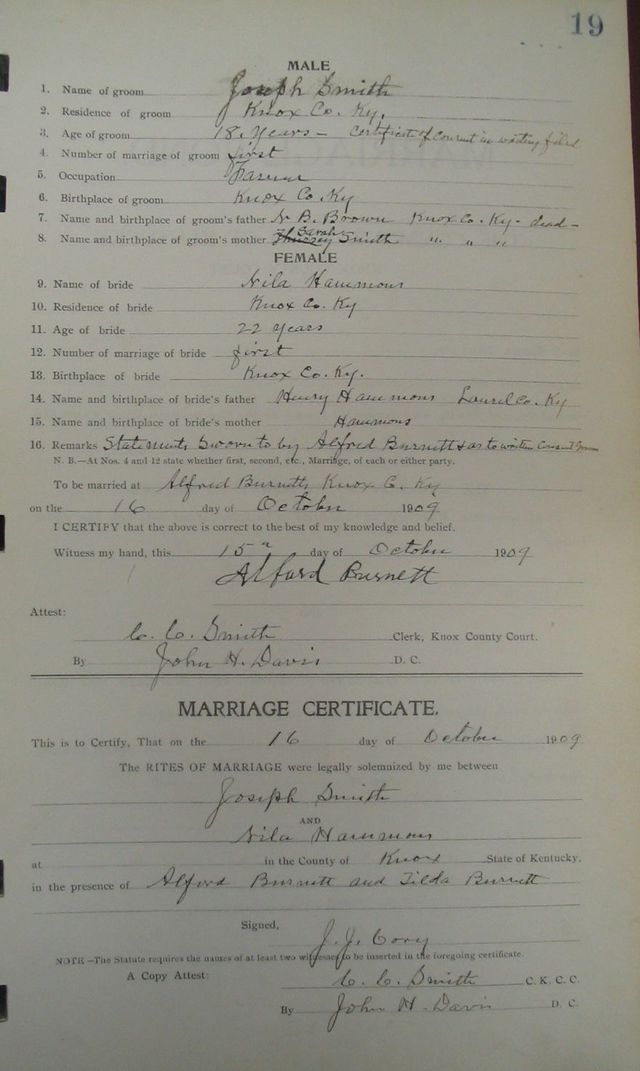 19
MALE
1. Name of groom Joseph Smith
2. Residence of groom Knox Co. Ky.
3. Age of groom 18. Years - Certificate of Consent in writing filed
4. Number of marriage of groom first
5. Occupation Farmer
6. Birthplace of groom Knox Co. Ky
7. Name and birthplace of groom's father N. B. Brown Knox Co. Ky - dead -
8. Name and birthplace of groom's mother Sarah Smith " " "
FEMALE
9. Name of bride Nila Hammons
10. Residence of bride Knox Co. Ky
11. Age of bride 22 years
12. Number of marriage of bride first
13. Birthplace of bride Knox Co. Ky.
14. Name and birthplace of bride's father Henry Hammons Laurel Co. Ky
15. Name and birthplace of bride's mother Hammons
16. Remarks Statements sworn to by Alfred Burnett & as to written Consent
N. B.—At Nos. 4 and 12 state whether first, second, etc., Marriage, of each or either party.
To be married at Alfred Burnetts Knox Co. Ky
on the 16 day of October 1909
I CERTIFY that the above is correct to the best of my knowledge and belief.
Witness my hand, this 15" day of October 1909
Alford Burnett
Attest:
C. C. Smith Clerk, Knox County Court.
By John H. Davis D. C.
MARRIAGE CERTIFICATE.
This is to Certify, That on the 16 day of October 1909
The RITES OF MARRIAGE were legally solemnized by me between
Joseph Smith
AND
Nila Hammons
at in the County of Knox State of Kentucky,
in the presence of Alford Burnett and Tilda Burnett
Signed,
J. J. Cory
NOTE—The Statute requires the names of at least two witnesses to be inserted in the foregoing certificate.
A Copy Attest: C. C. Smith C. K. C. C.
By John H. Davis D. C.